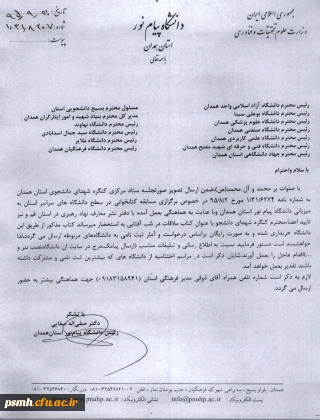 جمهوری اسلامی ایران
وزارت علوم تحقیقات و فناوری
دانشگاه پیام نور
استان همدان
باسمه تعالی
تاریخ:
شماره:
پیوست:
رئیس محترم دانشگاه آزاد اسلامی واحد همدان
رئیس محترم دانشگاه بوعلی سینا
رئیس محترم دانشگاه علوم پزشکی همدان
رئیس محترم دانشگاه صنعتی همدان
رئیس محترم دانشگاه علمی کاربردی همدان
رئیس محترم دانشگاه فنی و حرفه ای شهید مفتح همدان
رئیس محترم جهاد دانشگاهی استان همدان
مسئول محترم بسیج دانشجویی استان
مدیر کل محترم بنیاد شهید و امور ایثارگران همدان
رئیس محترم دانشگاه نهاوند
رئیس محترم دانشگاه سید جمال اسدآبادی
رئیس محترم دانشگاه ملایر
رئیس محترم دانشگاه فرهنگیان همدان
با سلام واحترام
با صلوات بر محمد و آل محمد(ص)ضمن ارسال تصویر صورتجلسه ستاد مرکزی کنگره شهدای دانشجوی استان همدان
به شماره نامه ۱/۳۱/۶۲۷۴ مورخ ۹۵/۸/۲ درخصوص برگزاری مسابقه کتابخوانی در سطح دانشگاه های سراسر استان به
میزبانی دانشگاه پیام نور استان همدان وبا عنایت به هماهنگی بعمل آمده با دفتر نشر معارف نهاد رهبری در استان قم و نیز
تایید اعضاءمحترم کنگره شهدای دانشجو با عنوان کتاب ملاقات در شب آفتابی به استحضار میرساند کتاب مذکور از طریق این
دانشگاه خریداری شده و به صورت رایگان براساس درخواست و آمار ثبت نامی به دانشگاههای مربوطه ارسال می گردد.لذا
خواهشمند است دستور فرمایید نسبت به اطلاع رسانی و تبلیغات مناسب
باشند تقدیر بعمل خواهد آمد.
لازم به ذکر است شماره تلفن همراه آقای ذوقی مدیر فرهنگی استان (۰۹۱۸۳۱۵۸۹۴۱) جهت هماهنگی بیشتر به حضور
ارسال می گردد.
با تشکر
دکتر صفی‌اله صفایی
رئیس دانشگاه پیام‌نور استان همدان
psmh.cfu.ac.ir